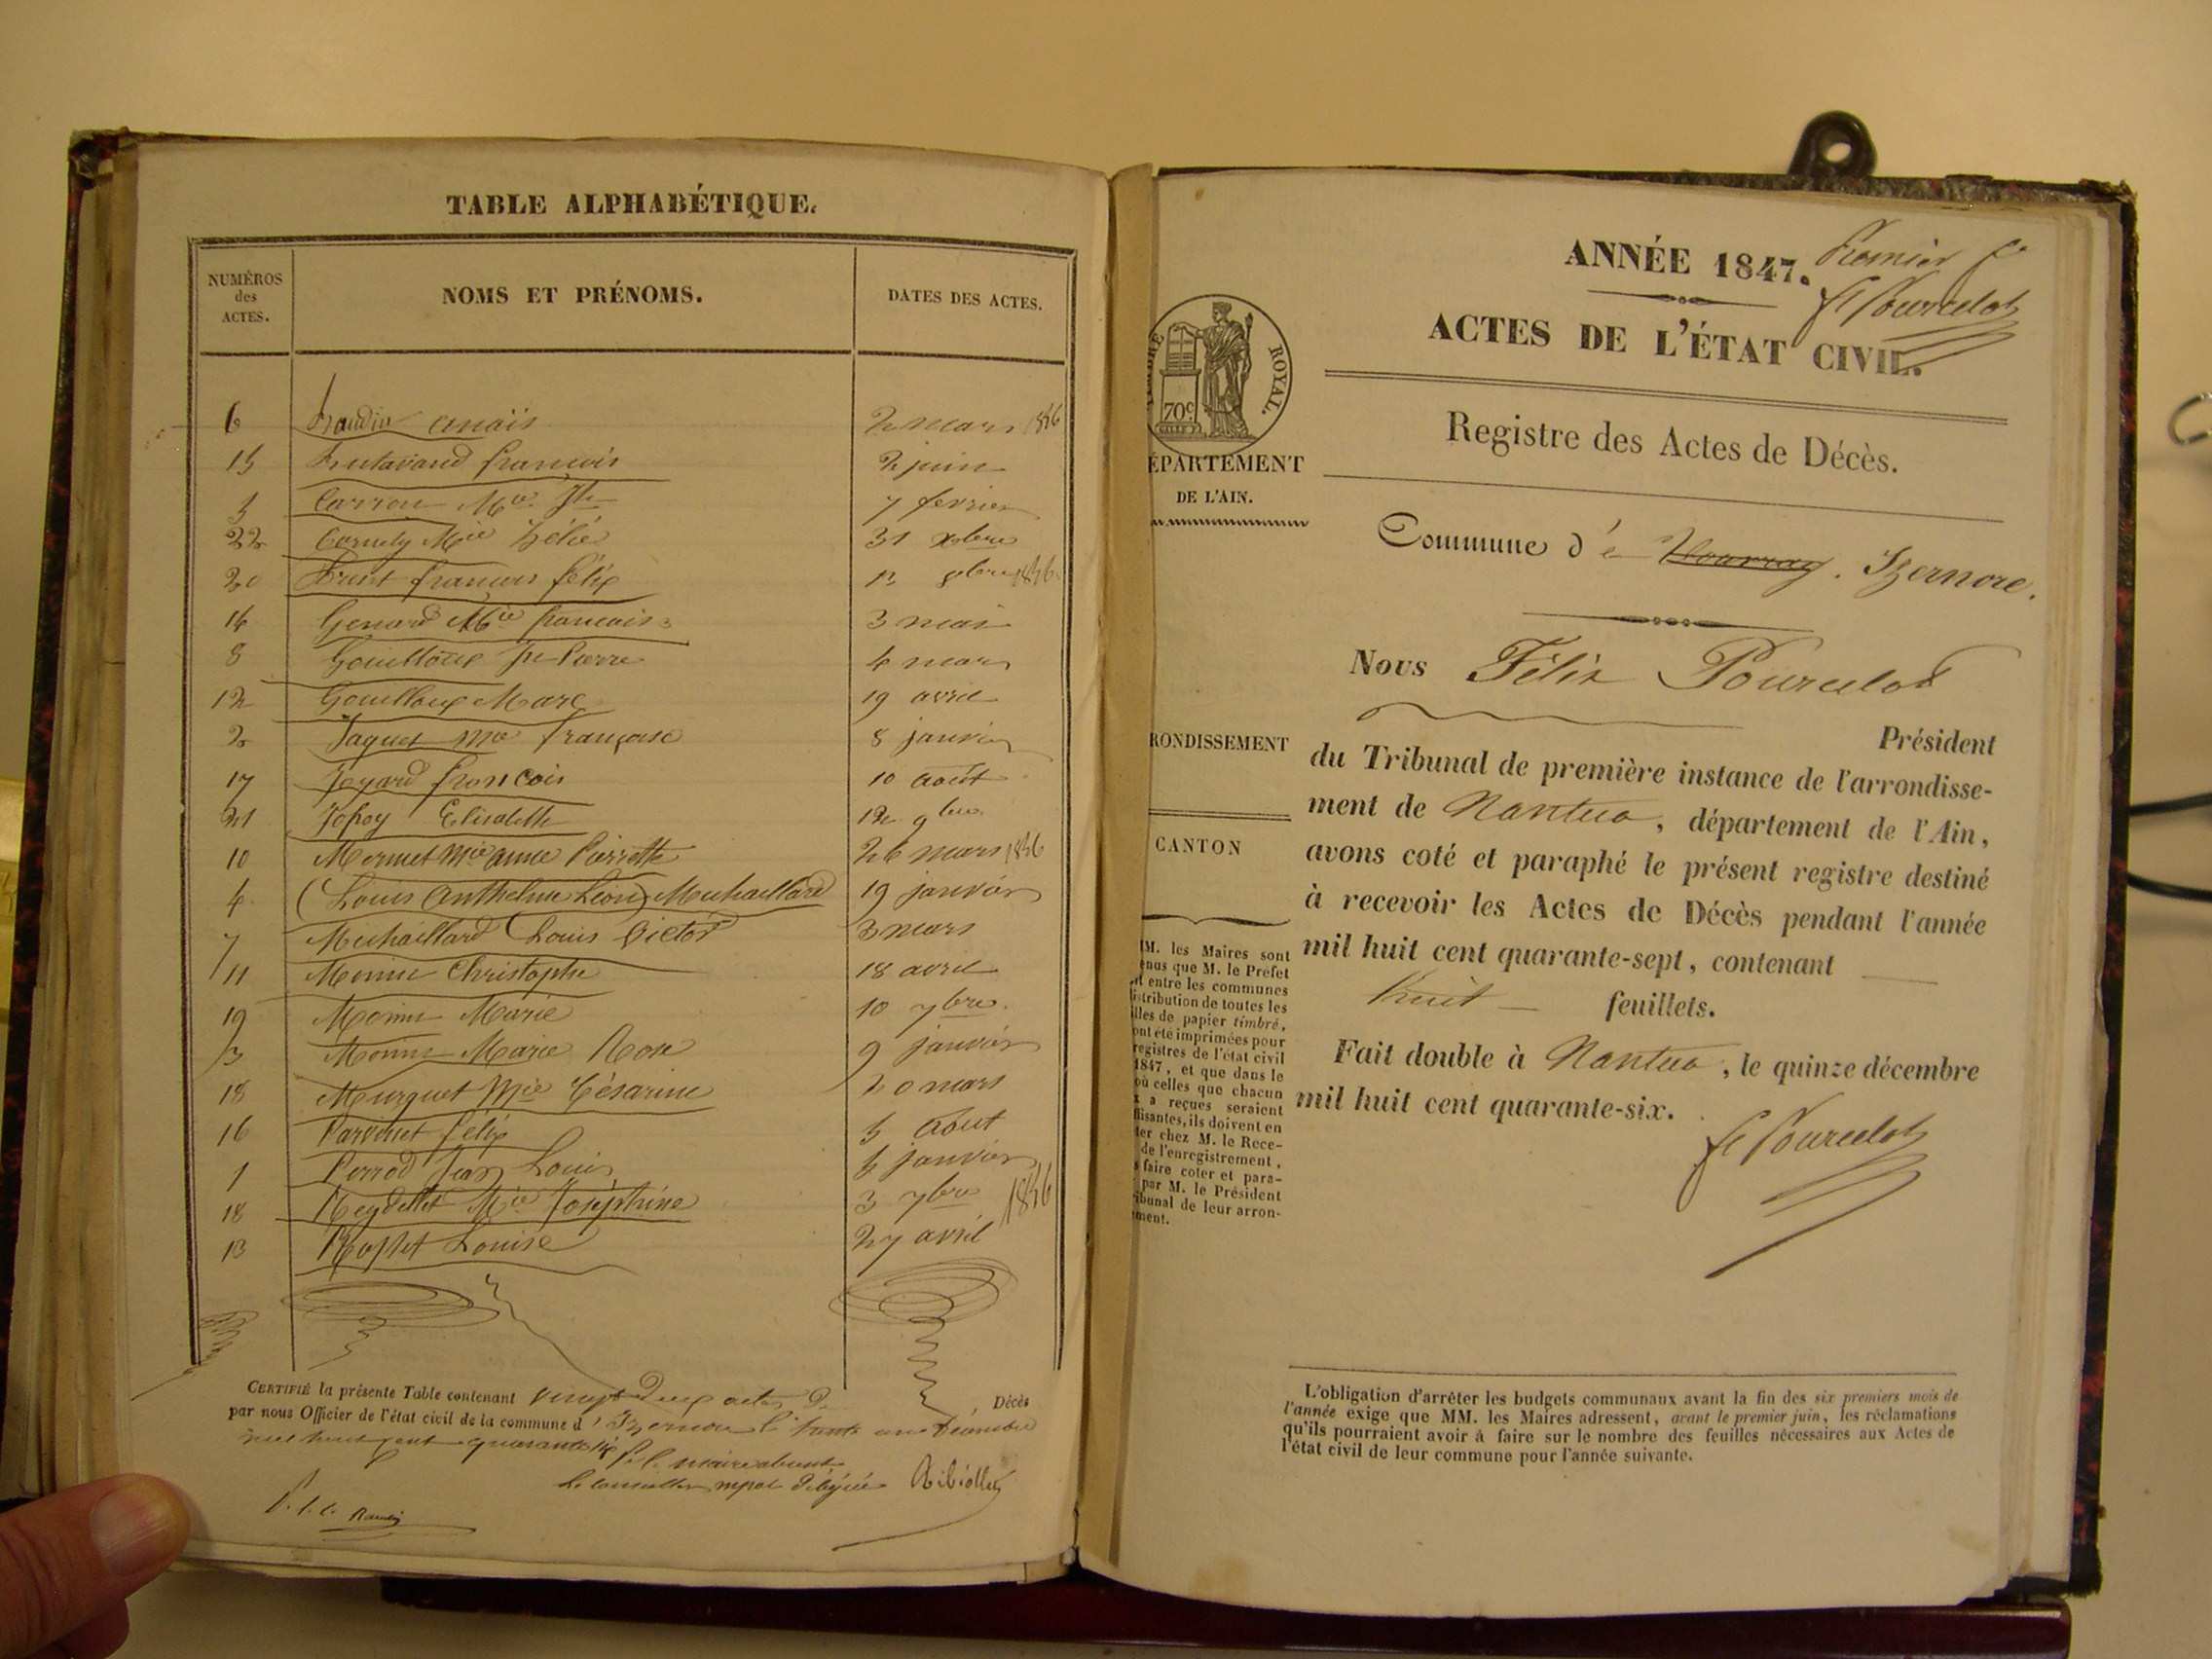 TABLE ALPHABÉTIQUE.
NUMÉROS des ACTES. NOMS ET PRÉNOMS. DATES DES ACTES.
6 anaïs 2 mars 1846
15 francois 2 juin
5 Carron Mie Jh 7 fevrier
22 Cornely Mie Zélie 31 xbre
20 francois félix 13 8bre 1846
14 Mie francoise 3 mai
8 Gouilloux Jn Pierre 4 mars
12 Gouilloux Marc 19 avril
2 Jaquet Mie françoise 8 janvier
17 Jeyard francois 10 août
21 Elisabeth 12 9bre
10 Mermet Mie anne Pierrette 26 mars 1846
4 (Louis Anthelme Léon) Michaillard 19 janvier
7 Michaillard Louis Victor 3 mars
11 Monin Christophe 18 avril
19 Monin Marie 10 7bre
3 Monin Marie Rose 9 janvier
18 Murquet Mie Césarine 20 mars
16 félix 5 août
1 Perrod Jean Louis 5 janvier
18 Reydellet Mie Joséphine 3 7bre 1846
13 Rosset Louise 27 avril
CERTIFIÉ la présente Table contenant vingt deux actes De Décès
par nous Officier de l'état civil de la commune d'Izernore le trente un Décembre
mil huit cent quarante six
P. le maire absent
Le conseiller mpal Délégué
ANNÉE 1847. Premier f.
F Pourcelot
ACTES DE L'ÉTAT CIVIL.
ROYAL.
70c
ÉPARTEMENT
DE L'AIN.
Registre des Actes de Décès.
Commune d' Izernore.
Nous Félix Pourcelot
Président
du Tribunal de première instance de l'arrondisse-
ment de Nantua, département de l'Ain,
avons coté et paraphé le présent registre destiné
à recevoir les Actes de Décès pendant l'année
mil huit cent quarante-sept, contenant
huit feuillets.
Fait double à Nantua, le quinze décembre
mil huit cent quarante-six.
F Pourcelot
RONDISSEMENT
CANTON
MM. les Maires sont
enus que M. le Préfet
it entre les communes
istribution de toutes les
illes de papier timbré,
ont été imprimées pour
registres de l'état civil
1847, et que dans le
où celles que chacun
x a reçues seraient
ffisantes, ils doivent en
ter chez M. le Rece-
de l'enregistrement,
s faire coter et para-
par M. le Président
ibunal de leur arron-
ment.
L'obligation d'arrêter les budgets communaux avant la fin des six premiers mois de
l'année exige que MM. les Maires adressent, avant le premier juin, les réclamations
qu'ils pourraient avoir à faire sur le nombre des feuilles nécessaires aux Actes de
l'état civil de leur commune pour l'année suivante.